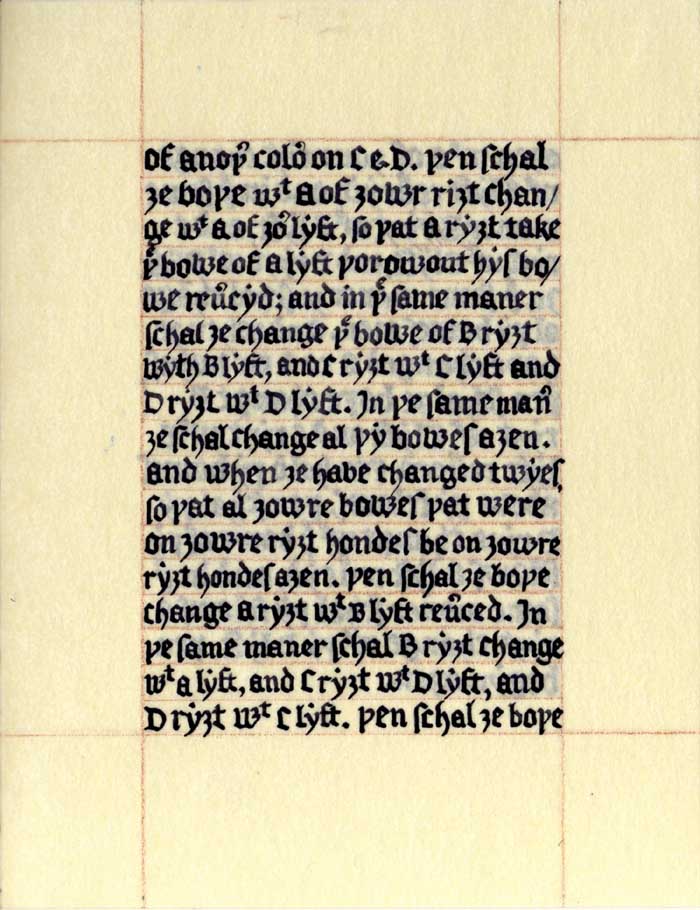 of anoþ͛ colo͛ on C & D. þen ſchal
ȝe boþe wᵗ A of ȝowr riȝt chan/
ge wᵗ A of ȝo͛ lẏft, ſo þat A rẏȝt take
þᵉ bowe of A lẏft þorowout hẏſ bo/
we reu͛cẏd; and in þᵉ ſame maner
ſchal ȝe change þᵉ bowe of B rẏȝt
wẏth B lẏft, and C rẏȝt wᵗ C lẏft and
D rẏȝt wᵗ D lẏft. In þe ſame man͛
ȝe ſchal change al þẏ boweſ aȝen.
and when ȝe habe changed twẏeſ,
ſo þat al ȝowre boweſ þat were
on ȝowre rẏȝt hondeſ be on ȝowre
rẏȝt hondeſ aȝen. þen ſchal ȝe boþe
change A rẏȝt wᵗ B lẏft reu͛ced. In
þe ſame maner ſchal B rẏȝt change
wᵗ A lẏft, and C rẏȝt wᵗ D lẏft, and
D rẏȝt wᵗ C lẏft. þen ſchal ȝe boþe